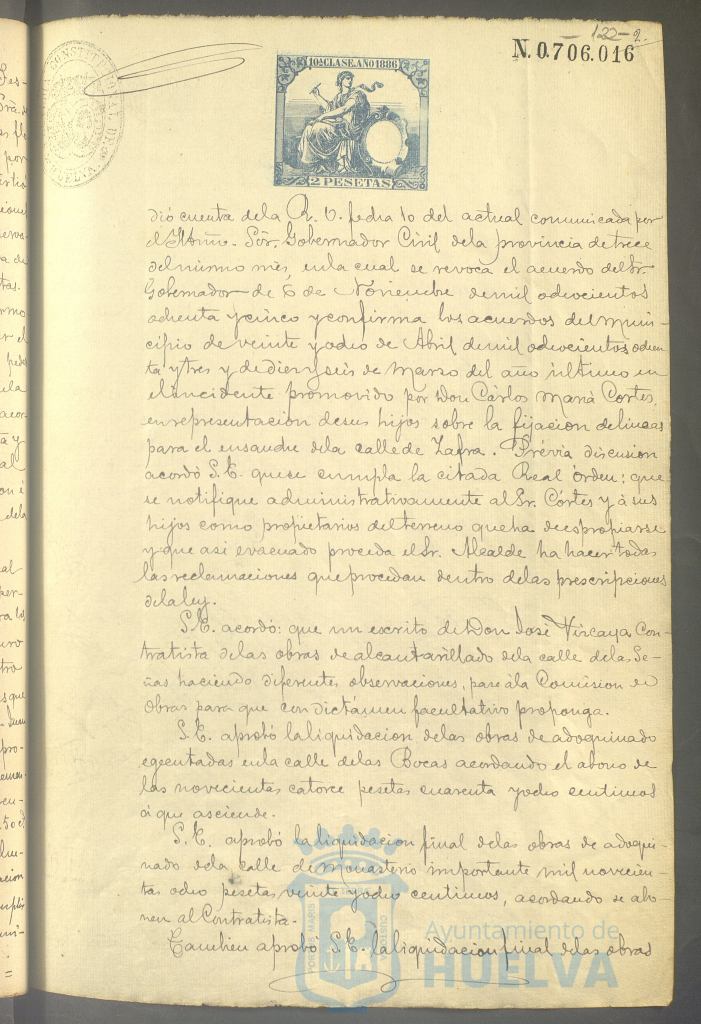 122-2.
N. 0.706.016
10ª CLASE. AÑO 1886
2 PESETAS
CONSTITUCIONAL DE
HUELVA
dió cuenta dela R. O. fecha 10 del actual comunicada por
el Iltmo. Sór. Gobernador Civil dela provincia de trece
del mismo mes, enla cual se revoca el acuerdo del Sr.
Gobernador de 6 de Noviembre demil ochocientos
ochenta y cinco y confirma los acuerdos del Muni-
cipio de veinte y ocho de Abril de mil ochocientos ochen
ta y tres y de diez y seis de Marzo del año último en
el incidente promovido por Don Cárlos Mariá Cortes,
en representacion de sus hijos sobre la fijacion de lineas
para el ensanche dela calle de Zafra. Prévia discusion
acordó S.E. que se cumpla la citada Real órden: que
se notifique administrativamente al Sr. Córtes y á sus
hijos como propietarios del terreno que ha de espropiarse
y que asi evacuado proceda el Sr. Alcalde ha hacer todas
las reclamaciones que procedan dentro delas prescripciones
dela ley.
S.E. acordó: que un escrito de Don José Vizcaya Con-
tratista delas obras de alcantarillado dela calle delas Se-
ñas haciendo diferentes observaciones, pase ála Comision de
Obras para que con dictámen facultativo proponga.
S.E. aprobó la liquidacion delas obras de adoquinado
egecutadas enla calle delas Bocas acordando el abono de
las novecientas catorce pesetas cuarenta y ocho centimos
á que asciende.
S.E. aprobó la liquidacion final delas obras de adoqui-
nado dela calle de Monasterio importante mil novecien-
tas ocho pesetas veinte y ocho centimos, acordando se abo-
nen al Contratista.
Tambien aprobó S.E. la liquidacion final delas obras
Ayuntamiento de
HUELVA